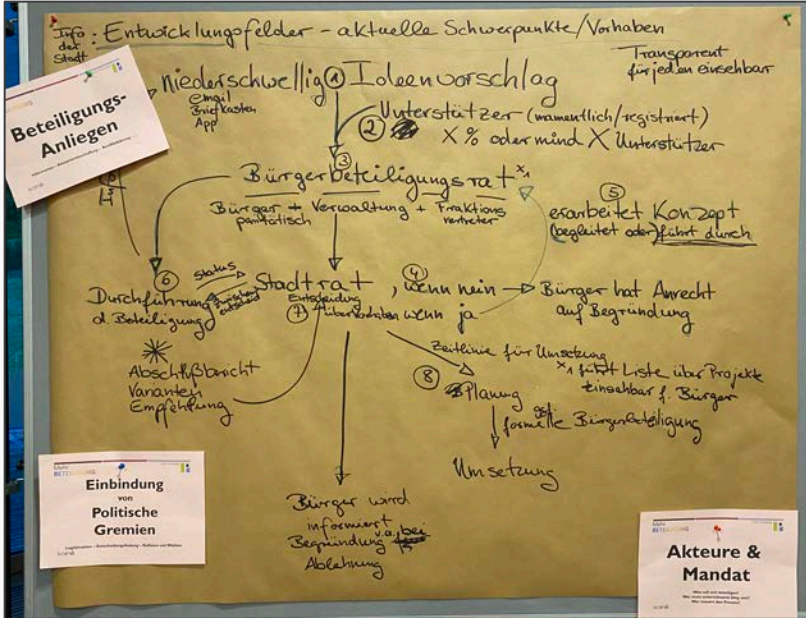 Info der Stadt: Entwicklungsfelder – aktuelle Schwerpunkte/Vorhaben
Transparent
für jeden einsehbar
niederschwellig ① Ideenvorschlag
email
Briefkasten
App
Beteiligungs-
Anliegen
Unterstützer (namentlich/registriert)
② X % oder mind X Unterstützer
③
Bürgerbeteiligungsrat x1
Bürger + Verwaltung + Fraktions
paritätisch vertreter
⑤
erarbeitet Konzept
(begleitet oder) führt durch
⑥
Durchführung
d. Beteiligung
Status
Stadtrat, ④ wenn nein → Bürger hat Anrecht
auf Begründung
Entscheidung
⑦ über Vorhaben
wenn ja
Abschlußbericht
Varianten
Empfehlung
Zeitlinie für Umsetzung
x1 führt Liste über Projekte
einsehbar f. Bürger
⑧ Planung
ggf.
formelle Bürgerbeteiligung
Umsetzung
Bürger wird
informiert
Begründung v.a. bei
Ablehnung
Mehr
BETEILIGUNG
Einbindung
von
Politische
Gremien
Mehr
BETEILIGUNG
Akteure &
Mandat